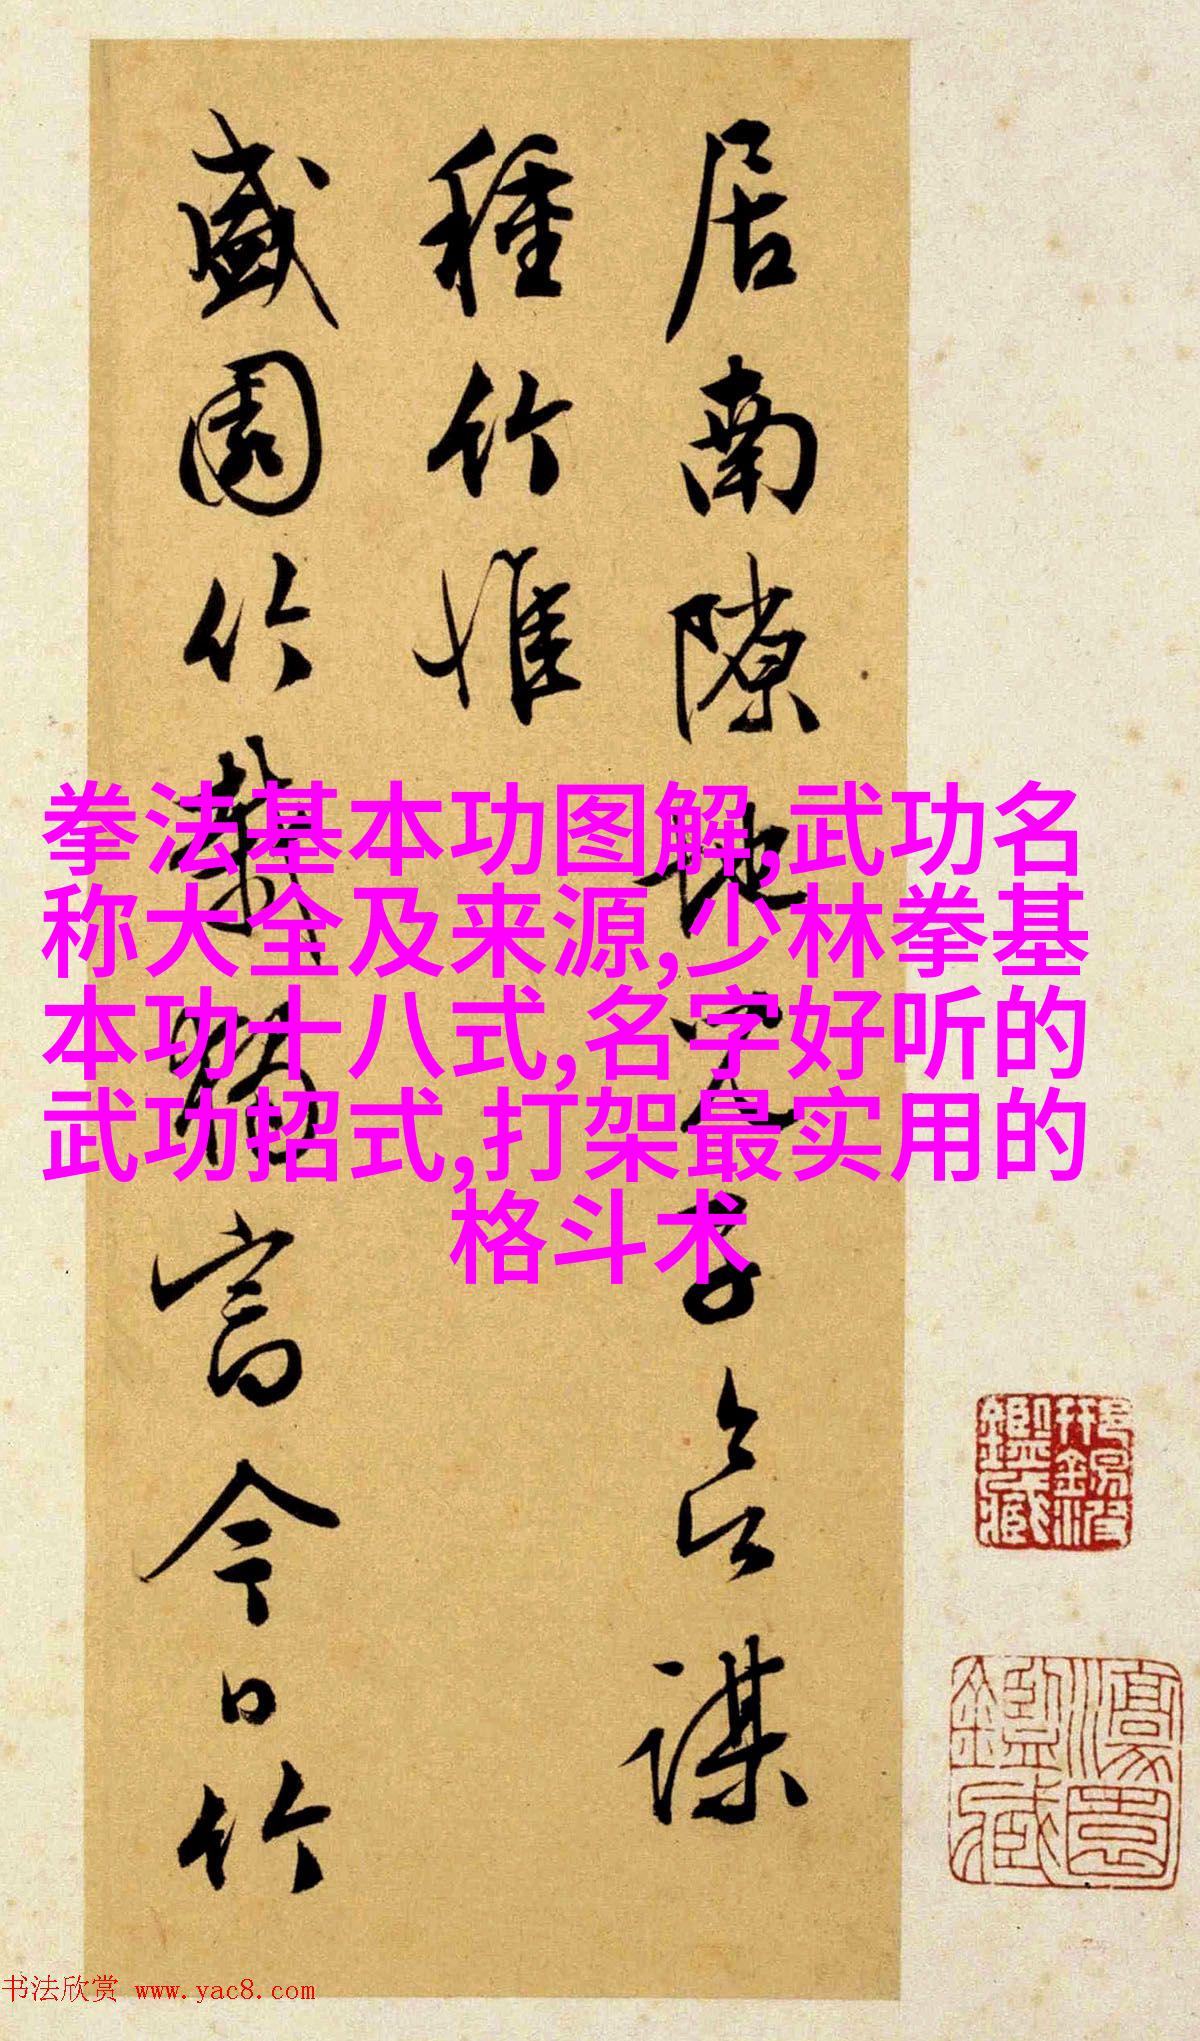 拳法基本功图解,武功名
称大全及来源,少林拳基
本功十八式,名字好听的
武功招式,打架最实用的
格斗术
居南隙地 子 謀
種竹惟
盛園竹 今日竹
书法欣赏 www.yac8.com